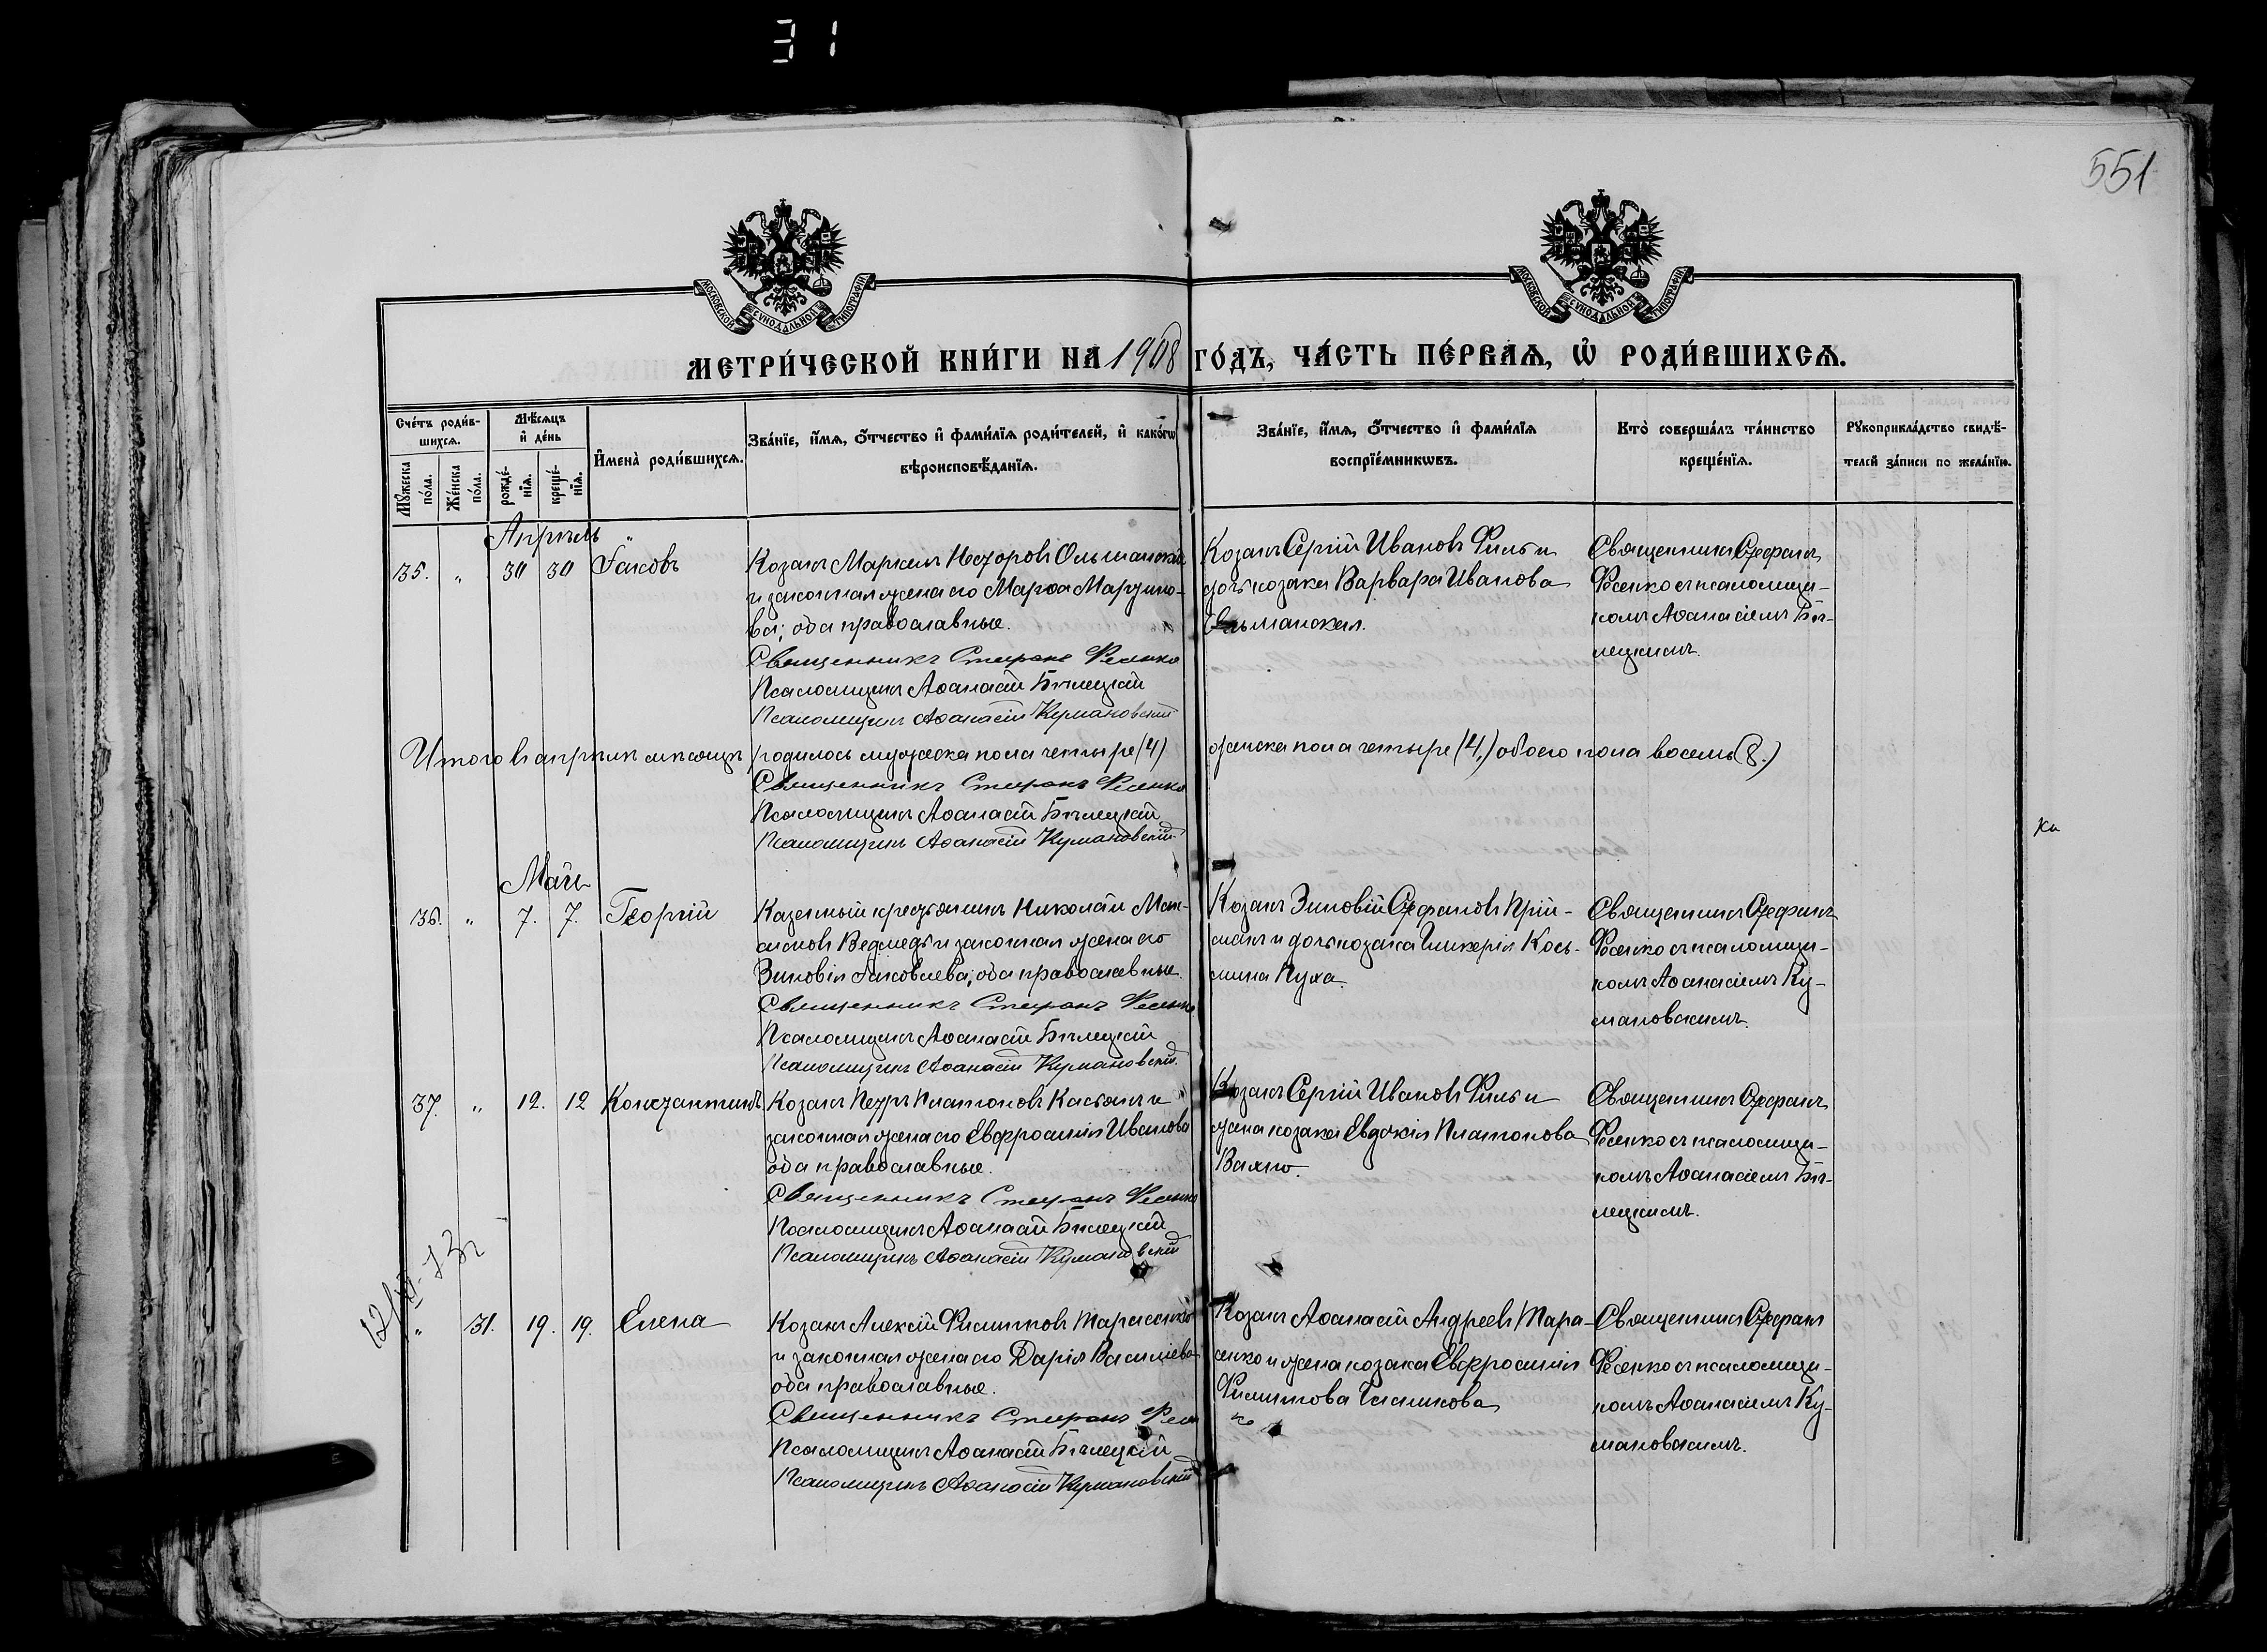 31
551
МОСКОВСКОЙ СѴНОДАЛЬНОЙ ТИПОГРАФІИ
МОСКОВСКОЙ СѴНОДАЛЬНОЙ ТИПОГРАФІИ
МЕТРИ́ЧЕСКОЙ КНИ́ГИ НА 1908 ГО́ДЪ, ЧА́СТЬ ПЕ́РВАѦ, Ѡ РОДИ́ВШИХСѦ.
Сче́тъ роди́в-
шихсѧ.
Мѣ́сѧцъ
и де́нь
Имена̀ роди́вшихсѧ.
Зва́нїе, и́мѧ, ѻ́тчество и фами́лїѧ роди́телей, и како́гѡ
вѣроисповѣ́данїѧ.
Зва́нїе, и́мѧ, ѻ́тчество и фами́лїѧ
воспрїе́мникѡвъ.
Кто̀ соверша́лъ та́инство
креще́нїѧ.
Рꙋкоприкла́дство свидѣ́-
телей за́писи по жела́нїю.
Мꙋ́жеска
по́ла.
Же́нска
по́ла.
рожде́-
нїѧ.
креще́-
нїѧ.
Апрѣль
135. " 30 30 Іаковъ
Козакъ Маркелъ Несторовъ Ольшанскій
и законная жена его Марѳа Мартино-
ва; оба православные.
Священникъ Стефанъ Фесенко
Псаломщикъ Аѳанасій Бѣлецкій
Псаломщикъ Аѳанасій Кумановскій
Козакъ Сергій Ивановъ Филь и
дочь козака Варвара Иванова
Ольшанская.
Священникъ Стефанъ
Фесенко съ псаломщи-
комъ Аѳанасіемъ Бѣ-
лецкимъ.
Итого въ апрѣлѣ мѣсяцѣ родилось мужеска пола четыре (4) женска пола четыре (4.) обоего пола восемь (8.)
Священникъ Стефанъ Фесенко
Псаломщикъ Аѳанасій Бѣлецкій
Псаломщикъ Аѳанасій Кумановскій
Май
136. " 7. 7. Георгій
Казенный крестьянинъ Николай Мак-
симовъ Ведмедь и законная жена его
Зиновія Іаковлева; оба православные.
Священникъ Стефанъ Фесенко
Псаломщикъ Аѳанасій Бѣлецкій
Псаломщикъ Аѳанасій Кумановскій
Козакъ Зиновій Стефановъ Прій-
макъ и дочь козака Гликерія Кось-
мина Пуха.
Священникъ Стефанъ
Фесенко съ псаломщи-
комъ Аѳанасіемъ Ку-
мановскимъ.
37. " 12. 12 Константинъ
Козакъ Петръ Платоновъ Касьянъ и
законная жена его Евфросинія Иванова
оба православные.
Священникъ Стефанъ Фесенко
Псаломщикъ Аѳанасій Бѣлецкій
Псаломщикъ Аѳанасій Кумановскій
Козакъ Сергій Ивановъ Филь и
жена козака Евдокія Платонова
Вахно.
Священникъ Стефанъ
Фесенко съ псаломщи-
комъ Аѳанасіемъ Бѣ-
лецкимъ.
" 31. 19. 19. Елена
Козакъ Алексій Филипповъ Тарасенко
и законная жена его Дарія Василіева
оба православные.
Священникъ Стефанъ Фесен
ко
Псаломщикъ Аѳанасій Бѣлецкій
Псаломщикъ Аѳанасій Кумановскій
Козакъ Аѳанасій Андреевъ Тара-
сенко и жена козака Евфросинія
Филиппова
Священникъ Стефанъ
Фесенко съ псаломщи-
комъ Аѳанасіемъ Ку-
мановскимъ.